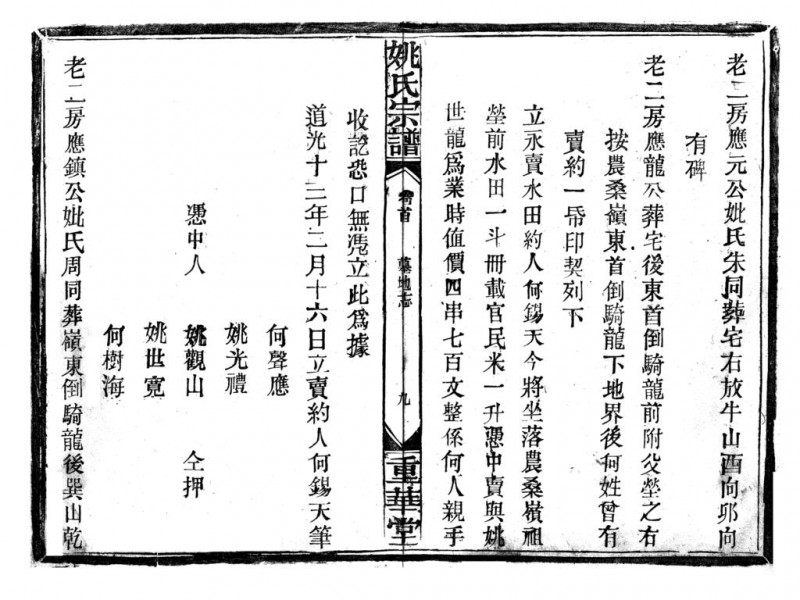 老二房應元公妣氏朱同葬宅右放牛山酉向卯向
有碑
老二房應龍公葬宅後東首倒騎龍前附父塋之右
按農桑嶺東首倒騎龍下地界後何姓曾有
賣約一帋印契列下
立永賣水田約人何錫天今將坐落農桑嶺祖
塋前水田一斗冊載官民米一升憑中賣與姚
世龍爲業時值價四串七百文整係何人親手
收訖恐口無凴立此爲據
道光十三年二月十六日立賣約人何錫天筆
何聲應
姚光禮
憑中人
姚觀山
仝押
姚世寬
何樹海
老二房應鎮公妣氏周同葬嶺東倒騎龍後巽山乾
姚氏宗譜
卷首
墓地志
九
重華堂